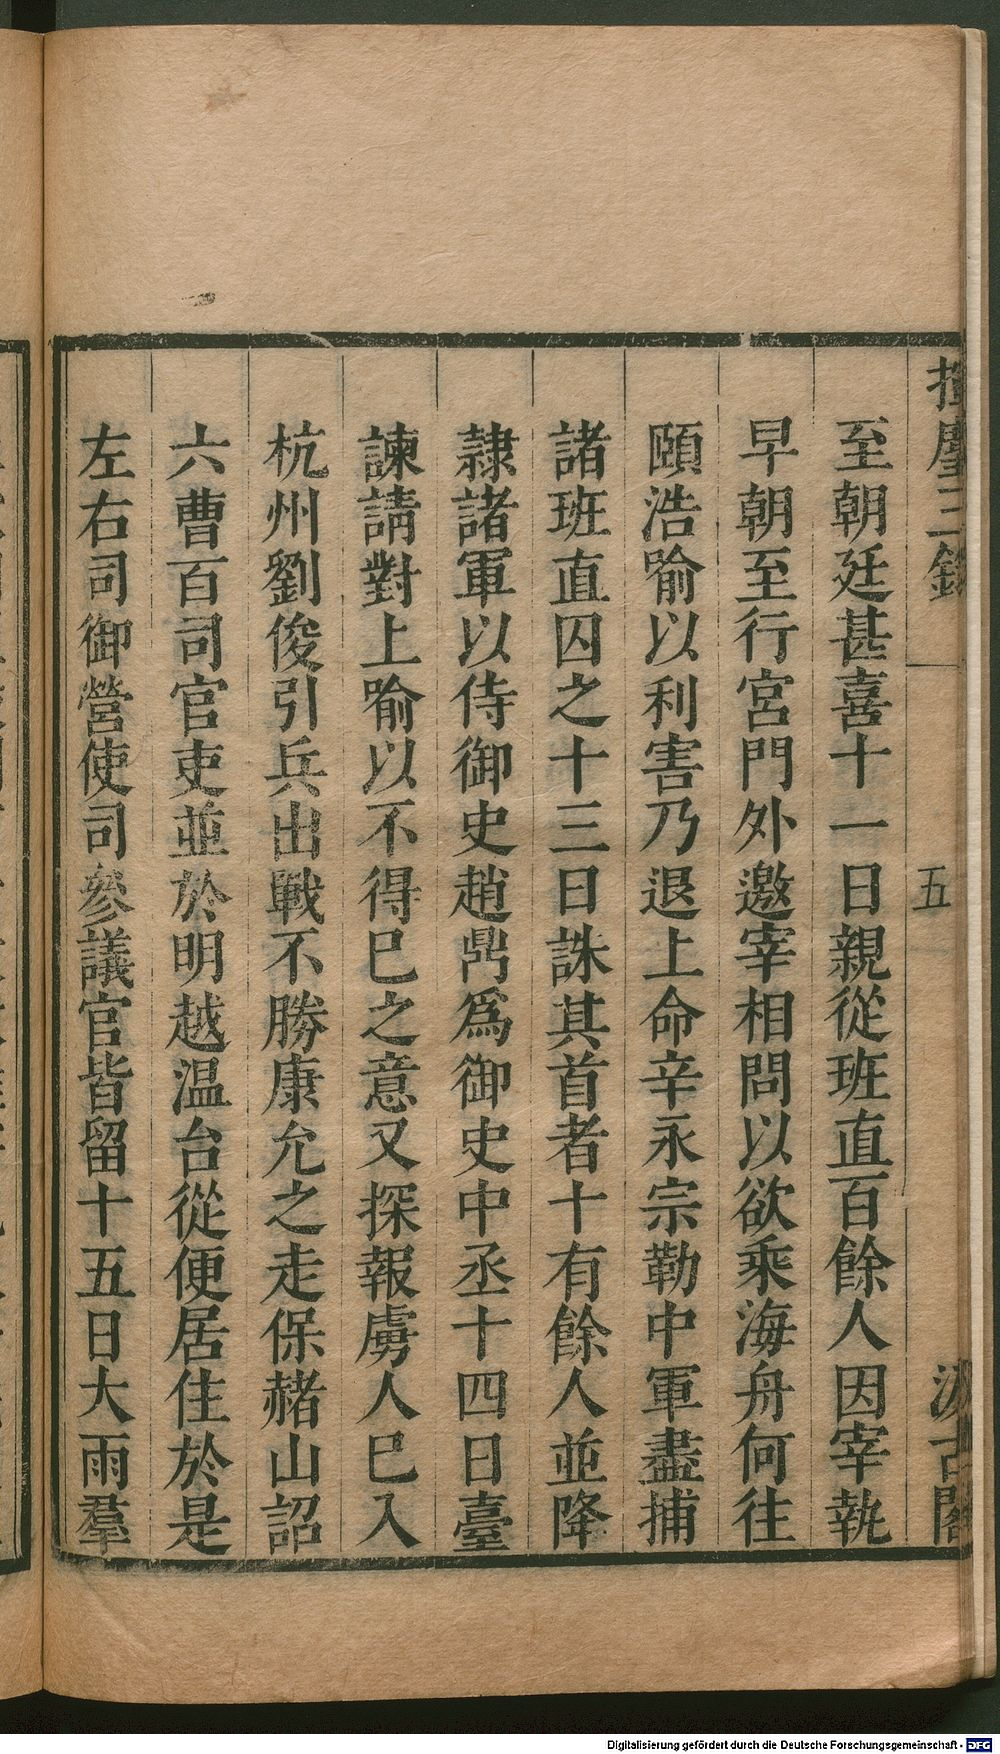 揮麈三錄
五
汲古閣
至朝廷甚喜十一日親從班直百餘人因宰執
早朝至行宮門外邀宰相問以欲乘海舟何往
頤浩喻以利害乃退上命辛永宗勒中軍盡捕
諸班直囚之十三日誅其首者十有餘人並降
隷諸軍以侍御史趙鼎爲御史中丞十四日臺
諫請對上喻以不得已之意又探報虜人已入
杭州劉俊引兵出戰不勝康允之走保赭山詔
六曹百司官吏並於明越温台從便居住於是
左右司御營使司參議官皆留十五日大雨羣
Digitalisierung gefördert durch die Deutsche Forschungsgemeinschaft - DFG